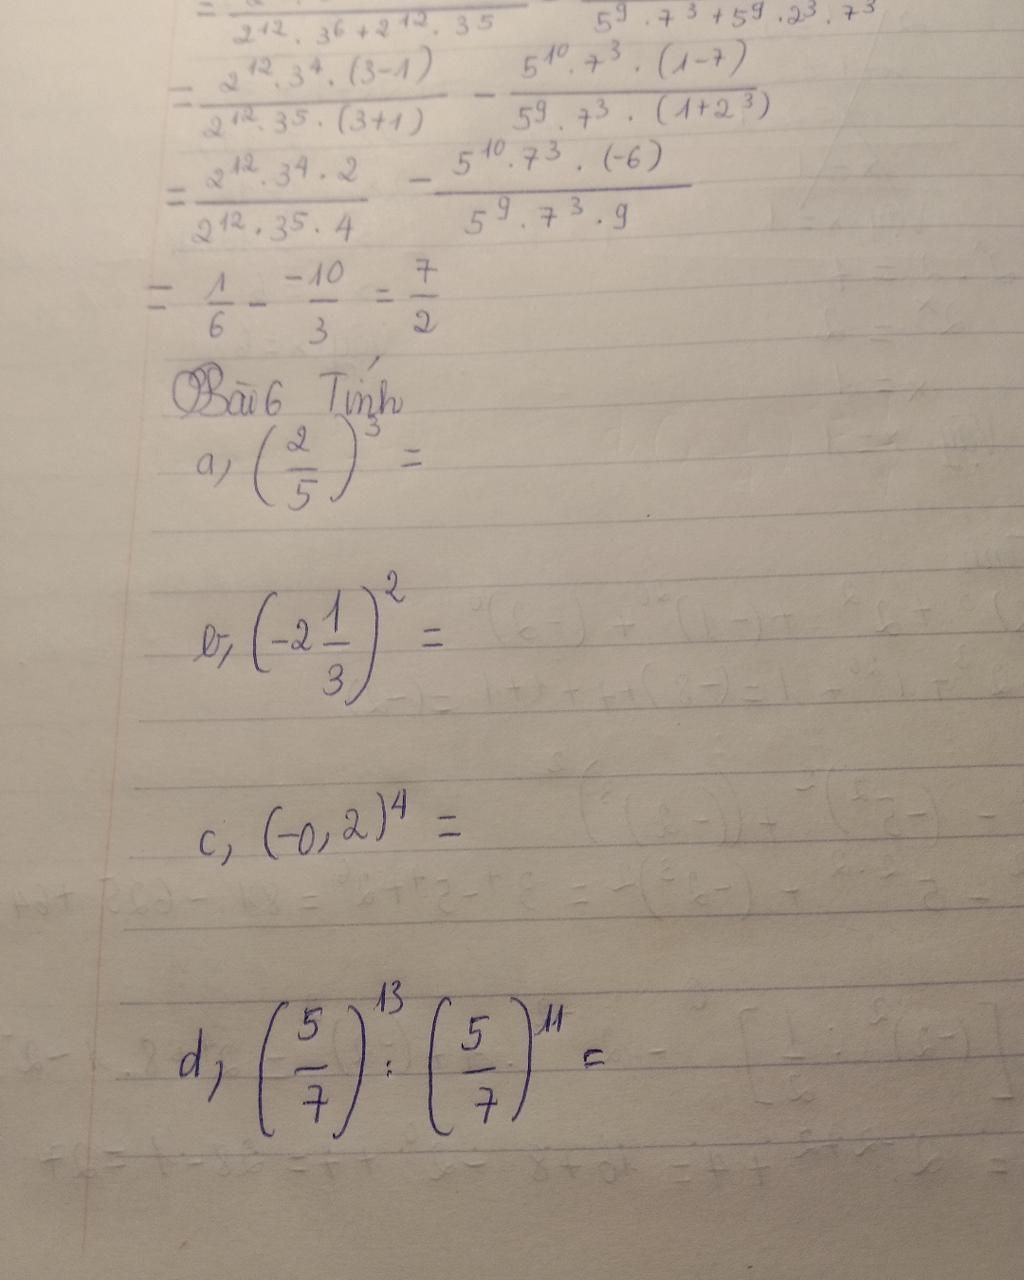 = 2¹² . 3⁶ + 2¹² . 3⁵ - 5⁹ . 7³ + 5⁹ . 2³ . 7³
= \frac{2¹² . 3⁴ . (3-1)}{2¹² . 3⁵ . (3+1)} - \frac{5¹⁰ . 7³ . (1-7)}{5⁹ . 7³ . (1+2³)}
= \frac{2¹² . 3⁴ . 2}{2¹² . 3⁵ . 4} - \frac{5¹⁰ . 7³ . (-6)}{5⁹ . 7³ . 9}
= \frac{1}{6} - \frac{-10}{3} = \frac{7}{2}
Bài 6 Tính
a, (\frac{2}{5})³ =
b, (-2\frac{1}{3})² =
c, (-0,2)⁴ =
d, (\frac{5}{7})¹³ : (\frac{5}{7})¹¹ =